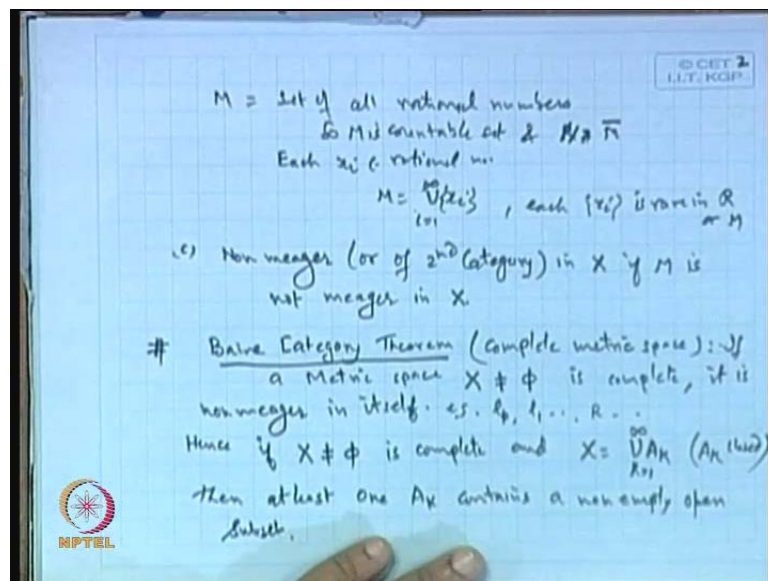 © CET 2
I.I.T. KGP
M = Set of all rational numbers
So M is countable set &
Each xi ∈ rational no.
M = ∞∪i=1 {xi} , each {xi} is rare in Q
or M
(c) Non meager (or of 2nd Category) in X if M is
not meager in X.
# Baire Category Theorem (Complete metric space): If
a Metric space X ≠ Φ is complete, it is
nonmeager in itself. eg. lp, l1 ..., R ..
Hence if X ≠ Φ is complete and X = ∞∪k=1 Ak (Ak closed)
then atleast one Ak contains a nonempty open
Subset.
NPTEL